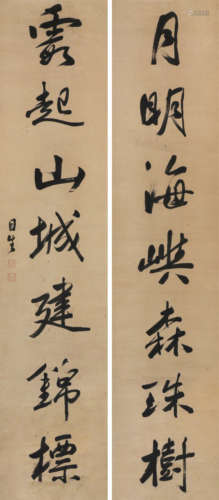 月明海嶼森珠樹
霞起山城建錦標